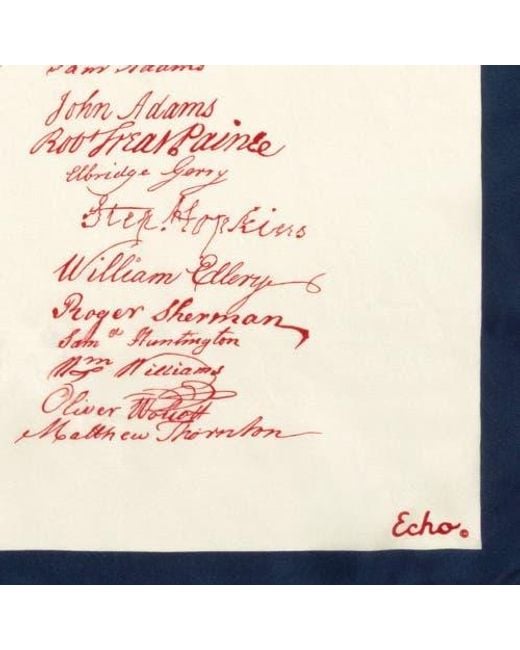 Sam Adams
John Adams
Robt Treat Paine
Elbridge Gerry
Step. Hopkins
William Ellery
Roger Sherman
Sam el Huntington
Wm Williams
Oliver Wolcott
Matthew Thornton
Echo©